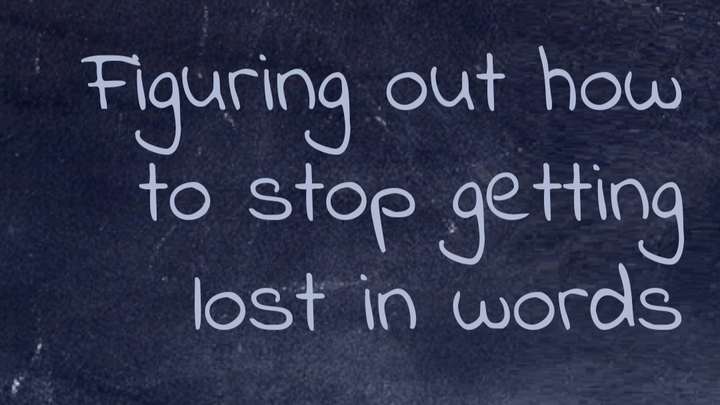 Figuring out how
to stop getting
lost in words